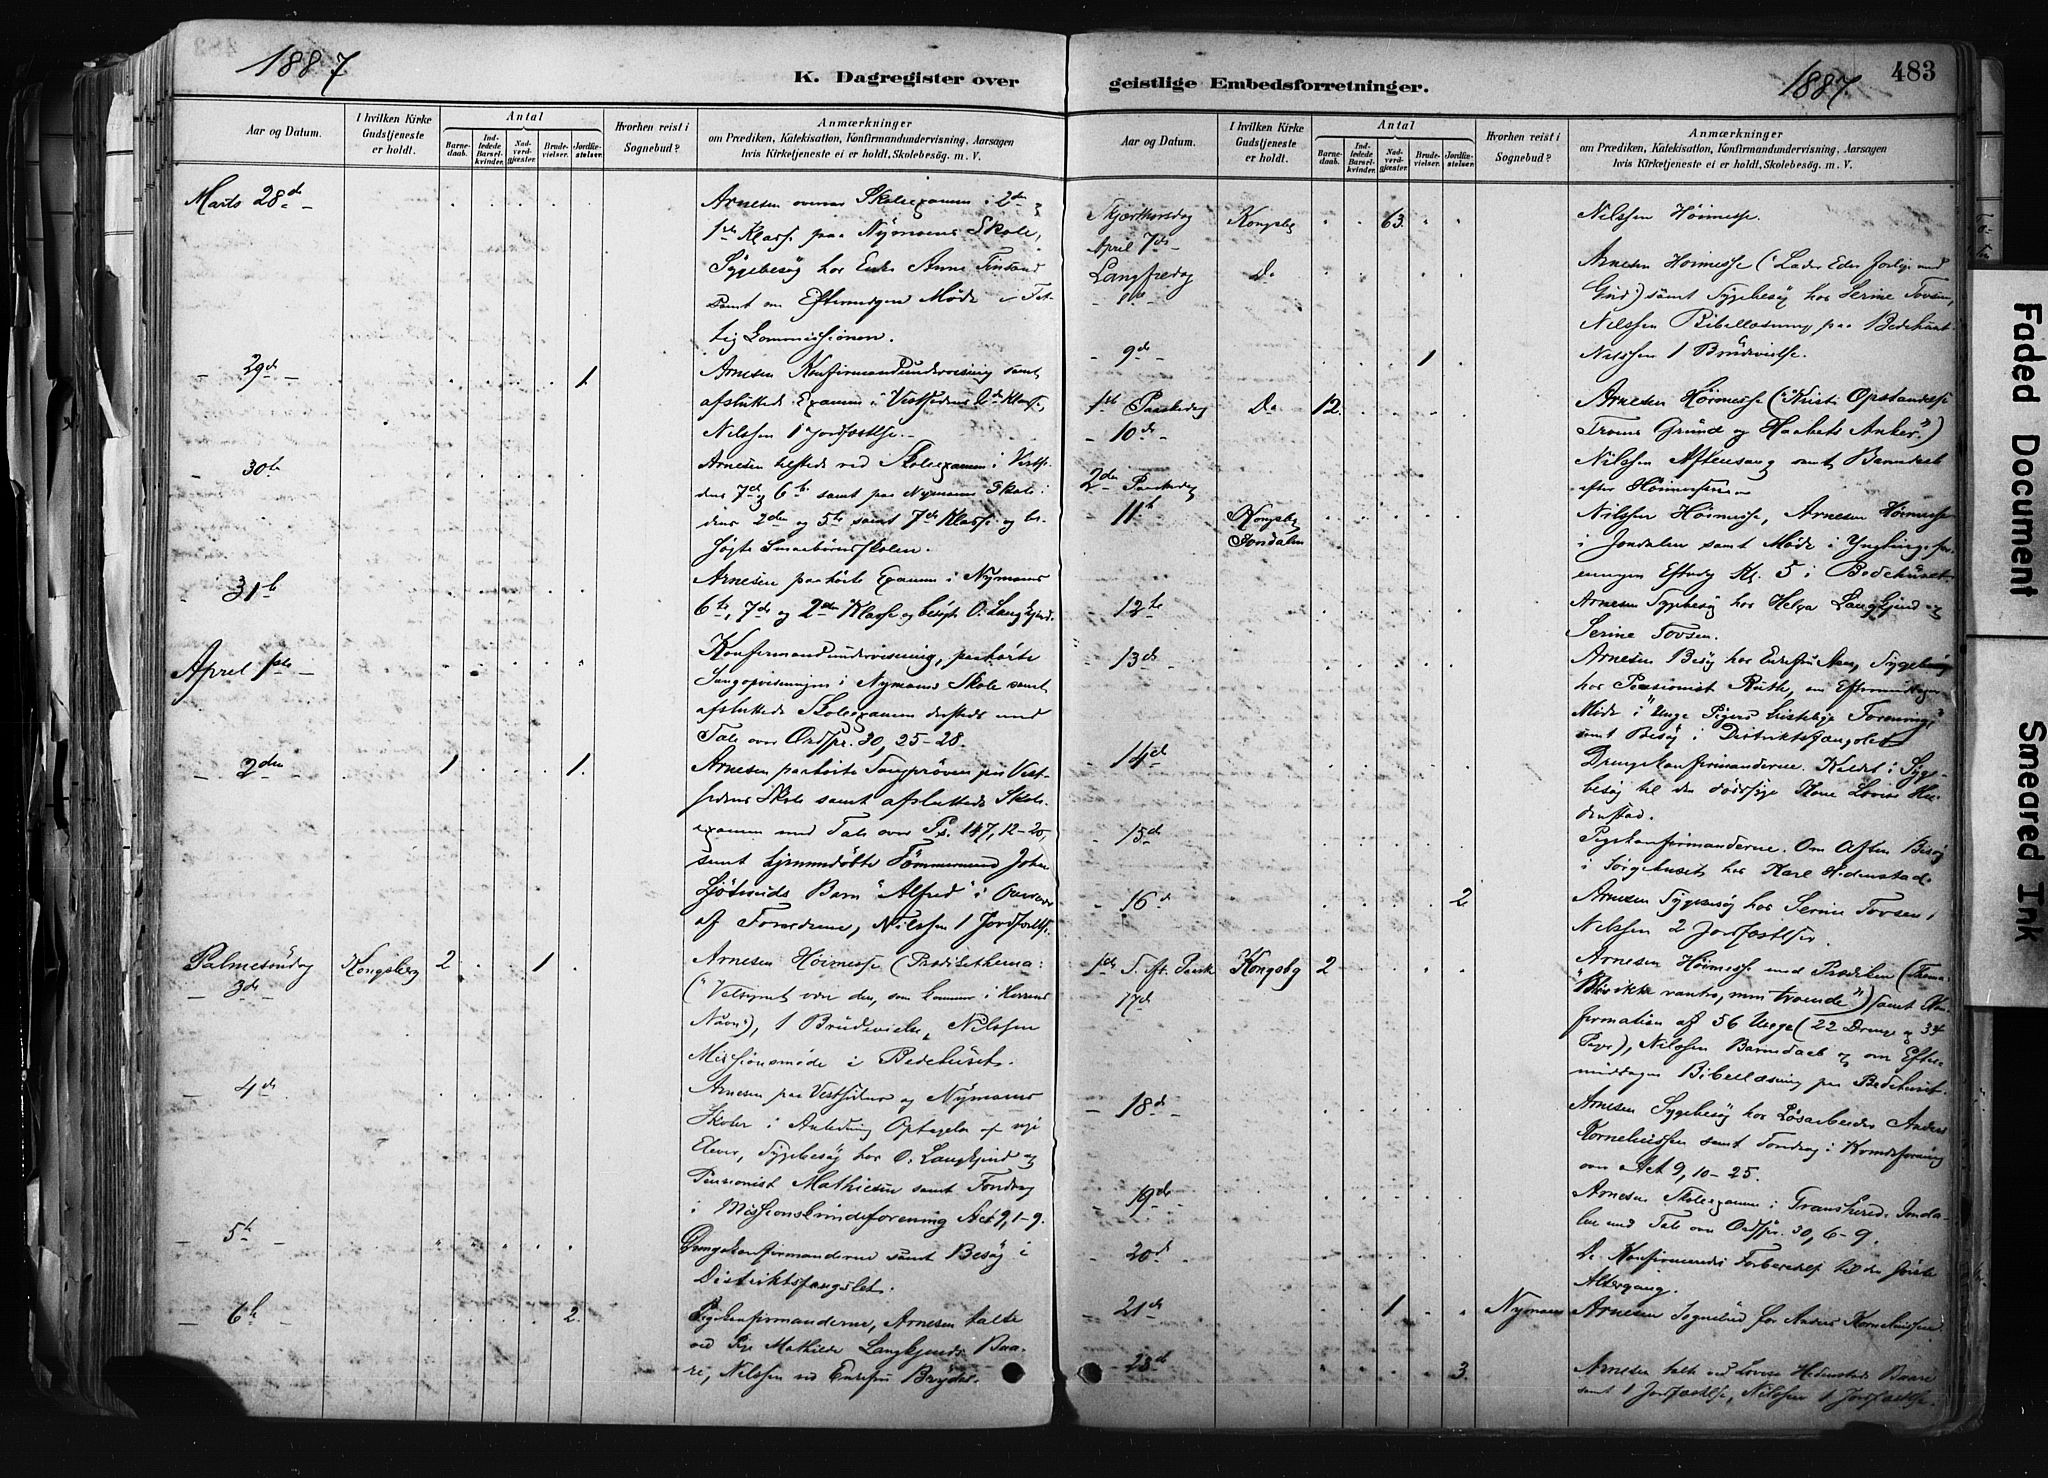 1887
K. Dagregister over
Aar og Datum.
I hvilken Kirke Gudstjeneste er holdt.
Antal
Barnedaab.
Indledede Barselkvinder.
Nadverdgjæster.
Brudevielser.
Jordfæstelser.
Hvorhen reist i Sognebud?
Anmærkninger
om Prædiken, Katekisation, Konfirmandundervisning, Aarsagen
hvis Kirketjeneste ei er holdt, Skolebesög. m. V.
Marts 28de
Arnesen overvar Skoleexamen i 2de og
1ste Klasse paa Nymoens Skole,
Sygebesög hos Enke Anne Tinsand
samt om Eftermidgen Møde i Fat-
tig Commissionen.
- 29de - 1.
Arnesen Konfirmandundervisning samt
afsluttede Examen i Vestsidens 2den Klasse,
Nilssen 1 Jordfæstelse.
- 30te
Arnesen tilstede ved Skoleexamen i Vestsi-
dens 7de og 6te samt paa Nymoens Skole i
dens 2den og 5te samt 7de Klasse og be-
søgte Smaabørnsskolen.
- 31te
Arnesen paahørte Examen i Nymoens
6te, 7de og 2den Klasse og besøgte O. Langkjend.
April 1ste -
Konfirmandundervisning, paahørte
Sangopvisningen i Nymoens Skole samt
afsluttede Skoleexamen dersteds med
Tale over Ordspr. 30, 25-28.
- 2den 1 1.
Arnesen paahørte Sangprøven paa Vest-
sidens Skole samt afsluttede Skole-
examen med Tale over Ps. 147, 12-20,
samt hjemmedøbte Tömmermand John
Barn "Alfred" i Overvær
af Forældrene, Nilssen 1 Jordfæstelse.
Palmesøndag Kongsberg 2 1
- 3de
Arnesen Høimesse (Prædikethema:
("Velsignet være den, som kommer i Herrens
Navn"), 1 Brudevielse, Nilssen
Missionsmøde i Bedehuset.
- 4de
Arnesen paa Vestsidens og Nymoens
Skoler i Anledning Optagelse af nye
Elever, Sygebesög hos O. Langkjend og
Pensionist Mathiesen samt Foredrag
i Missionskvindeforening Act 9, 1-9.
- 5te -
Drengekonfirmanderne samt Besøg i
Distriktsfængslet.
- 6te 2.
Pigekonfirmanderne, Arnesen talte
ved Pige Mathilde Langkjends Baa-
re, Nilssen ved Enkefru
geistlige Embedsforretninger.
1887
483
Aar og Datum.
I hvilken Kirke Gudstjeneste er holdt.
Antal
Barnedaab.
Indledede Barselkvinder.
Nadverdgjæster.
Brudevielser.
Jordfæstelser.
Hvorhen reist i Sognebud?
Anmærkninger
om Prædiken, Katekisation, Konfirmandundervisning, Aarsagen
hvis Kirketjeneste ei er holdt, Skolebesög. m. V.
Skjærthorsdag Kongsbg 63.
April 7de -
Nilssen Høimesse.
Langfredag Do
- 8de
Arnesen Høimesse ("Lader Eder forlige med
Gud") samt Sygebesøg hos Serine Tovsen,
Nilssen Bibellæsning paa Bedehuset
- 9de - 1
Nilssen 1 Brudevielse.
1ste Paaskedag Do 12.
- 10de -
Arnesen Høimesse ("Kristi Opstandelse
Troens Grund og Haabets Anker".)
Nilssen Aftensang samt Barnedaab
efter Høimessen
2den Paaskedag
- 11te Kongsbg
Jondalen
Nilssen Høimesse, Arnesen Høimesse
i Jondalen samt Møde i Ynglingefor-
eningen Eftmdg Kl. 5 i Bedehuset.
- 12te
Arnesen Sygebesøg hos Helga Langkjend og
Serine Tovsen.
- 13de
Arnesen Besøg hos Enkefru Sygebesøg
hos Pensionist Ruth, om Eftermiddagen
Møde i "Unge Pigers kristelige Forening"
samt Besøg i Distriktsfængslet
- 14de
Drengekonfirmanderne. Kaldet i Syge-
besøg til den dødssyge Kone Lovise He-
denstad.
- 15de
Pigekonfirmanderne. Om Aften Besøg
i Sørgehuset hos Karl Hedenstad.
- 16de 2
Arnesen Sygebesøg hos Serine Tovsen,
Nilssen 2 Jordfæstelser.
1ste S. eft. Paaske Kongsbg 2
17de
Arnesen Høimesse med Prædiken (Thema:
"Bliv ikke vantro, men troende") samt Kon-
firmation af 56 Unge (22 Drenge og 34
Piger), Nilssen Barnedaab og om Efter-
middagen Bibellæsning paa Bedehuset.
- 18de -
Arnesen Sygebesøg hos Løsarbeider Anders
Kornelinssen samt Foredrag i Kvindeforening
over Act 9, 10-25.
- 19de -
Arnesen Skoleexamen i Gransherred Jonda-
len med Tale over Ordspr. 30, 6-9.
- 20de
De Konfirmeredes Forberedelse til den første
Altergang.
- 21de 1 Nymoen
Arnesen Sognebud for Anders Kornelinssen
- 23de 3.
Arnesen talte ved Lovise Hedenstads Baare
samt 1 Jordfæstelse, Nilssen 1 Jordfæstelse.
Faded Document
Smeared Ink